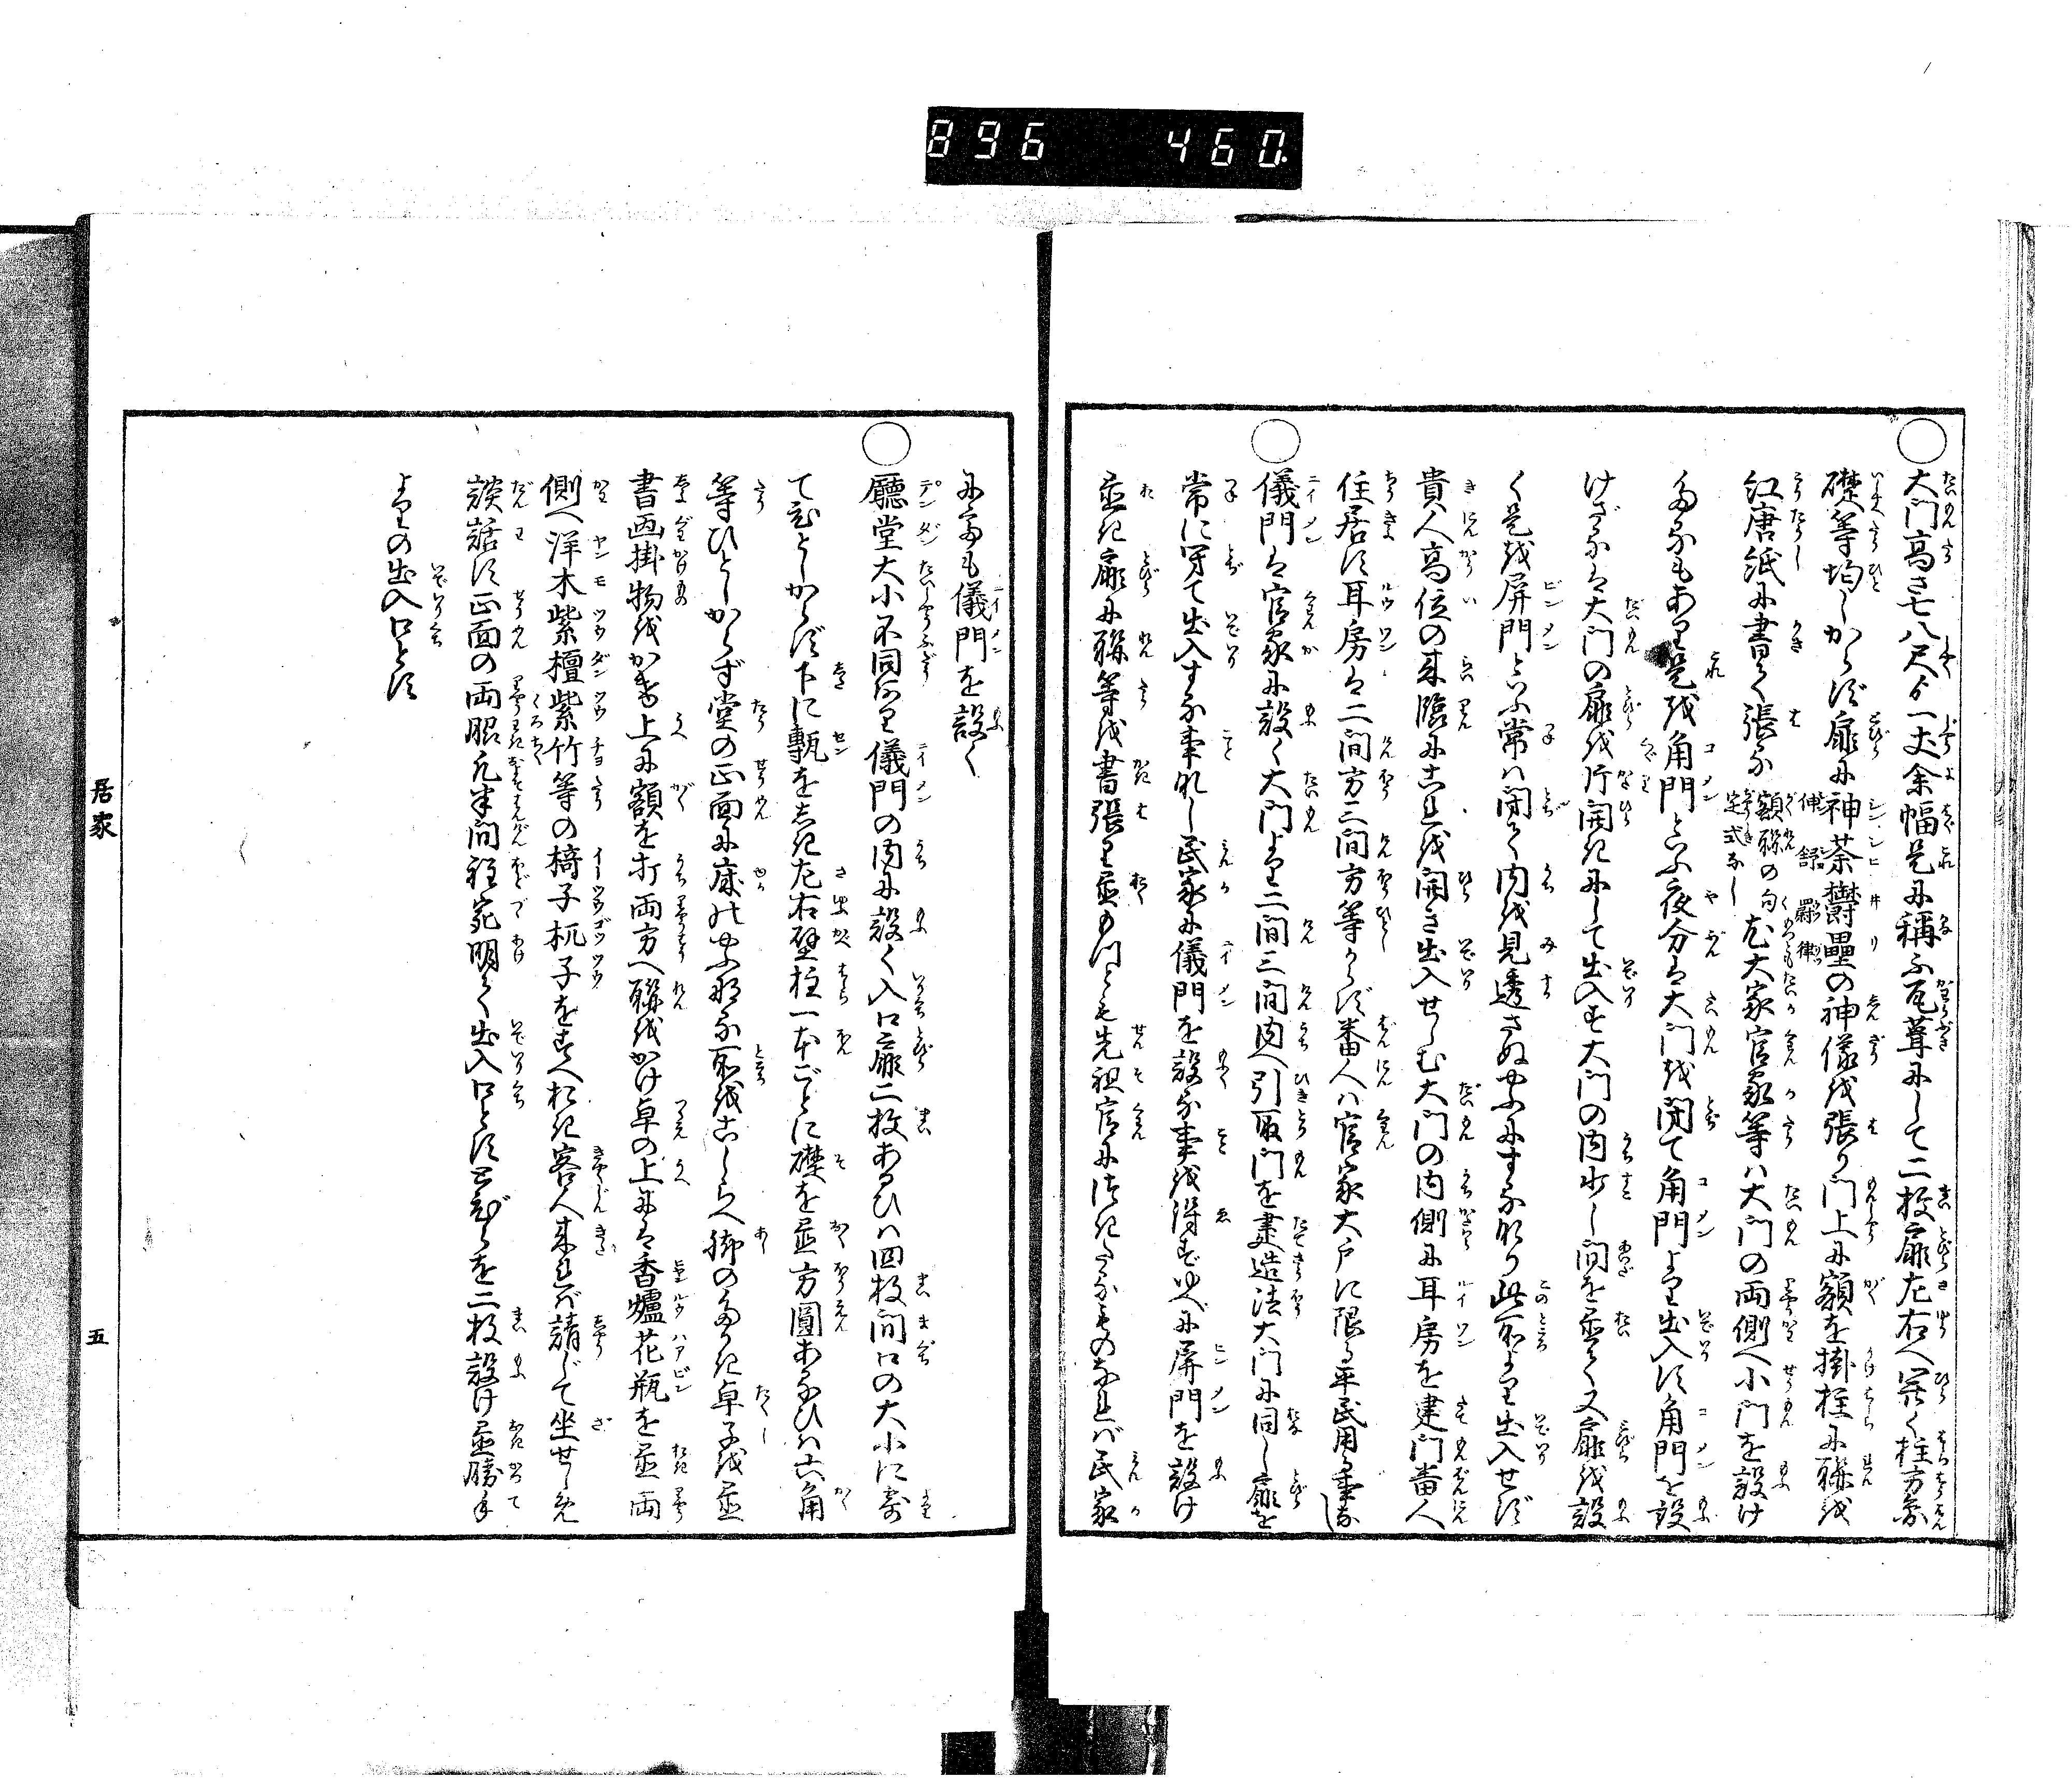 896 460
○大門高さ七八尺より一丈余幅是に稱ふ瓦葺にして二枚扉左右へ開く柱方円
礎等均しからず扉に神荼欝壘の神像を張り門上に額を掛柱に聯を
紅唐紙に書て張る 額聯の句定式なし 尤大家官家等ハ大門の両側へ小門を設け
たるもあり是を角門といふ夜分は大門を閉て角門より出入す角門を設
けざるは大門の扉を片開きにして出入す大門の内少し間を置て又扉を設
く是を屏門といふ常ハ閉て内を見透さぬやふにするなり此所より出入せず
貴人高位の来臨に是を開き出入せしむ大門の内側に耳房を建門番人
住居す耳房は二間方三間方等からず番人ハ官家大戸に限る平民用る事なし
○儀門は官家に設く大門より二間三間内へ引取門を建造法大門に同し扉を
常に閉て出入する事なし民家に儀門を設る事を得ざれバ屏門を設け
置き扉に聯等を書張り置の門とも先祖官に付きたるものなれバ民家
にても儀門を設く
○廳堂大小不同あり儀門の内に設く入口扉二枚あるひハ四枚間口の大小に寄
てひとしからず下に甎をしき左右壁柱一本ごとに礎を置方圓あるひハ六角
等ひとしからず堂の正面に床のやふなる所をこしらへ脚のたかき卓子を置
書画掛物をかけ上に額を打両方へ聯をかけ卓の上には香爐花瓶を置両
側へ洋木紫檀紫竹等の椅子杌子をすへおき客人来れバ請じて坐せしめ
談話す正面の両脇凡半間程宛明て出入口とすとびらを二枚設け置勝手
よりの出入口とす
居家
五